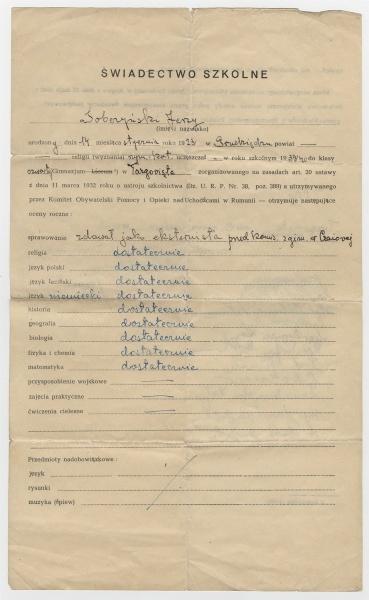 ŚWIADECTWO SZKOLNE
Soboczyński Jerzy
(imię i nazwisko)
urodzony dnia 14 miesiąca stycznia roku 1923 w Grudziądzu powiat —
religii (wyznania) rzym.-kat. uczęszczał — w roku szkolnym 1939/40 do klasy
czwartej gimnazjum Liceum *) w Targoviste zorganizowanego na zasadach art. 20 ustawy
z dnia 11 marca 1932 roku o ustroju szkolnictwa (Dz. U. R. P. Nr. 38, poz. 389) a utrzymywanego
przez Komitet Obywatelski Pomocy i Opieki nad Uchodźcami w Rumunii — otrzymuje następujące
oceny roczne:
sprawowanie zdawał jak eksternista przed Kom. egzam. w Craiovej
religia dostatecznie
język polski dostatecznie
język łaciński dostatecznie
język niemiecki dostatecznie
historia dostatecznie
geografia dostatecznie
biologia dostatecznie
fizyka i chemia dostatecznie
matematyka dostatecznie
przysposobienie wojskowe —
zajęcia praktyczne —
ćwiczenia cielesne —
Przedmioty nadobowiązkowe:
język
rysunki
muzyka (śpiew)